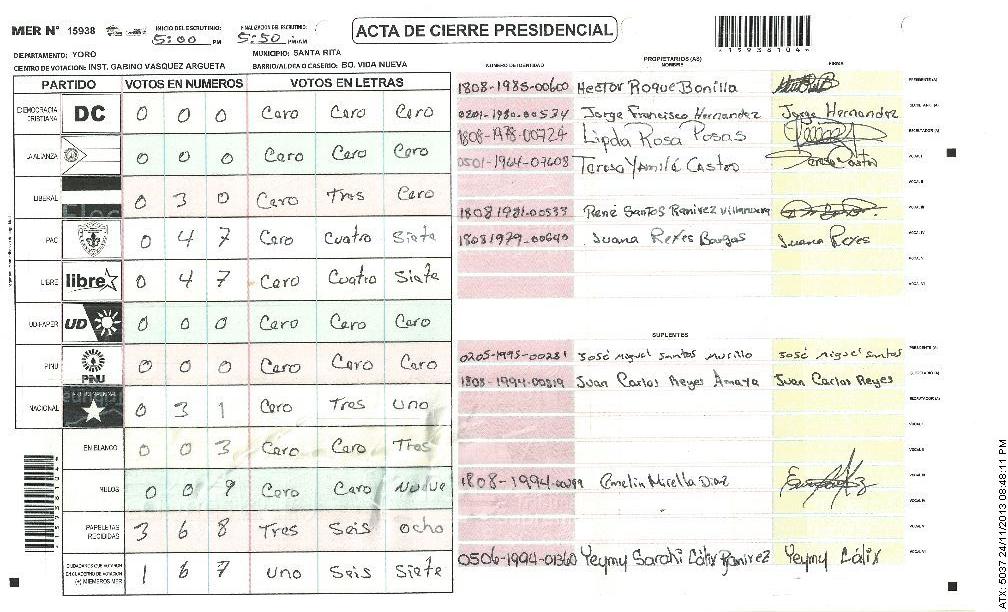 MER N° 15938 INICIO DEL ESCRUTINIO: 5:00 PM FINALIZACION DEL ESCRUTINIO: 5:50 PM/AM
ACTA DE CIERRE PRESIDENCIAL
*15938104*
DEPARTAMENTO: YORO MUNICIPIO: SANTA RITA
CENTRO DE VOTACION: INST. GABINO VASQUEZ ARGUETA BARRIO/ALDEA O CASERIO: BO. VIDA NUEVA
PARTIDO VOTOS EN NUMEROS VOTOS EN LETRAS
DEMOCRACIA CRISTIANA DC 0 0 0 Cero Cero Cero
LA ALIANZA 0 0 0 Cero Cero Cero
LIBERAL 0 3 0 Cero Tres Cero
PAC 0 4 7 Cero Cuatro Siete
LIBRE libre 0 4 7 Cero Cuatro Siete
UD-FAPER UD 0 0 0 Cero Cero Cero
PINU PiNU 0 0 0 Cero Cero Cero
NACIONAL 0 3 1 Cero Tres Uno
EN BLANCO 0 0 3 Cero Cero Tres
NULOS 0 0 9 Cero Cero Nueve
PAPELETAS RECIBIDAS 3 6 8 Tres Seis Ocho
CIUDADANOS QUE VOTARON EN CUADERNO DE VOTACION (+) MIEMBROS MER 1 6 7 Uno Seis Siete
PROPIETARIOS (AS)
NUMERO DE IDENTIDAD NOMBRE FIRMA
1808-1985-00600 Hestor Roque Bonilla PRESIDENTE (A)
0201-1980-00534 Jorge Francisco Hernandez Jorge Hernandez SECRETARIO (A)
1808-1978-00724 Lipda Rosa Posas ESCRUTADOR (A)
0501-1964-07608 Teresa Yamilé Castro Teresa Castro VOCAL I
VOCAL II
1808 1981-00533 René Santos Ramirez Villanueva VOCAL III
1808 1979-00640 Juana Reyes Bargas Juana Reyes VOCAL IV
VOCAL V
VOCAL VI
SUPLENTES
0205-1995-00281 José Miguel Santos Murillo José Miguel Santos PRESIDENTE (A)
1808-1994-00819 Juan Carlos Reyes Amaya Juan Carlos Reyes SECRETARIO (A)
ESCRUTADOR (A)
VOCAL I
VOCAL II
1808-1994-00099 Emelin Mirella Diaz VOCAL III
VOCAL IV
VOCAL V
0506-1994-01360 Yeymy Sarahi Cálix Ramirez Yeymy Cálix VOCAL VI
ATX: 5037 24/11/2013 08:48:11 PM